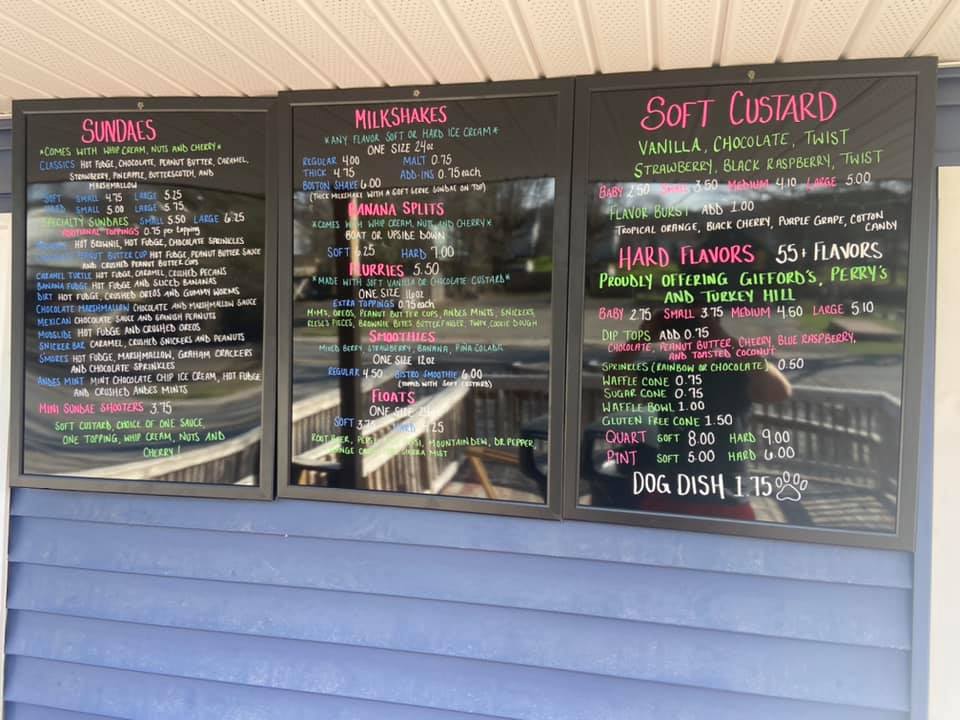 SUNDAES
*COMES WITH WHIP CREAM, NUTS AND CHERRY*
CLASSICS HOT FUDGE, CHOCOLATE, PEANUT BUTTER, CARAMEL,
STRAWBERRY, PINEAPPLE, BUTTERSCOTCH, AND
MARSHMALLOW
SOFT SMALL 4.75 LARGE 5.25
HARD SMALL 5.00 LARGE 5.75
SPECIALTY SUNDAES SMALL 5.50 LARGE 6.25
ADDITIONAL TOPPINGS 0.75 per topping
HOT BROWNIE, HOT FUDGE, CHOCOLATE SPRINKLES
PEANUT BUTTER CUP HOT FUDGE, PEANUT BUTTER SAUCE
AND CRUSHED PEANUT BUTTER CUPS
CARAMEL TURTLE HOT FUDGE, CARAMEL, CRUSHED PECANS
BANANA FUDGE HOT FUDGE AND SLICED BANANAS
DIRT HOT FUDGE, CRUSHED OREOS AND GUMMY WORMS
CHOCOLATE MARSHMALLOW CHOCOLATE AND MARSHMALLOW SAUCE
MEXICAN CHOCOLATE SAUCE AND SPANISH PEANUTS
MUDSLIDE HOT FUDGE AND CRUSHED OREOS
SNICKER BAR CARAMEL, CRUSHED SNICKERS AND PEANUTS
SMORES HOT FUDGE, MARSHMALLOW, GRAHAM CRACKERS
AND CHOCOLATE SPRINKLES
ANDES MINT MINT CHOCOLATE CHIP ICE CREAM, HOT FUDGE
AND CRUSHED ANDES MINTS
MINI SUNDAE SHOOTERS 3.75
SOFT CUSTARD, CHOICE OF ONE SAUCE,
ONE TOPPING, WHIP CREAM, NUTS AND
CHERRY!
MILKSHAKES
*ANY FLAVOR SOFT OR HARD ICE CREAM*
ONE SIZE 24oz
REGULAR 4.00 MALT 0.75
THICK 4.75 ADD-INS 0.75 each
BOSTON SHAKE 6.00
(THICK MILKSHAKE WITH A SOFT SERVE SUNDAE ON TOP)
BANANA SPLITS
*COMES WITH WHIP CREAM, NUTS AND CHERRY*
BOAT OR UPSIDE DOWN
SOFT 6.25 HARD 7.00
FLURRIES 5.50
*MADE WITH SOFT VANILLA OR CHOCOLATE CUSTARD*
ONE SIZE 16oz
EXTRA TOPPINGS 0.75 each
M&M'S, OREOS, PEANUT BUTTER CUPS, ANDES MINTS, SNICKERS,
REESE'S PIECES, BROWNIE BITES, BUTTERFINGER, TWIX, COOKIE DOUGH
SMOOTHIES
MIXED BERRY, STRAWBERRY, BANANA, PINA COLADA
ONE SIZE 12oz
REGULAR 4.50 BISTRO SMOOTHIE 6.00
(TOPPED WITH SOFT CUSTARD)
FLOATS
ONE SIZE
SOFT HARD
ROOT BEER, PEPSI, MOUNTAIN DEW, DR PEPPER,
SIERRA MIST
SOFT CUSTARD
VANILLA, CHOCOLATE, TWIST
STRAWBERRY, BLACK RASPBERRY, TWIST
BABY 2.50 SMALL 3.50 MEDIUM 4.10 LARGE 5.00
FLAVOR BURST ADD 1.00
TROPICAL ORANGE, BLACK CHERRY, PURPLE GRAPE, COTTON
CANDY
HARD FLAVORS 55+ FLAVORS
PROUDLY OFFERING GIFFORD'S, PERRY'S
AND TURKEY HILL
BABY 2.75 SMALL 3.75 MEDIUM 4.60 LARGE 5.10
DIP TOPS ADD 0.75
CHOCOLATE, PEANUT BUTTER, CHERRY, BLUE RASPBERRY,
AND TOASTED COCONUT
SPRINKLES (RAINBOW OR CHOCOLATE) 0.50
WAFFLE CONE 0.75
SUGAR CONE 0.75
WAFFLE BOWL 1.00
GLUTEN FREE CONE 1.50
QUART SOFT 8.00 HARD 9.00
PINT SOFT 5.00 HARD 6.00
DOG DISH 1.75